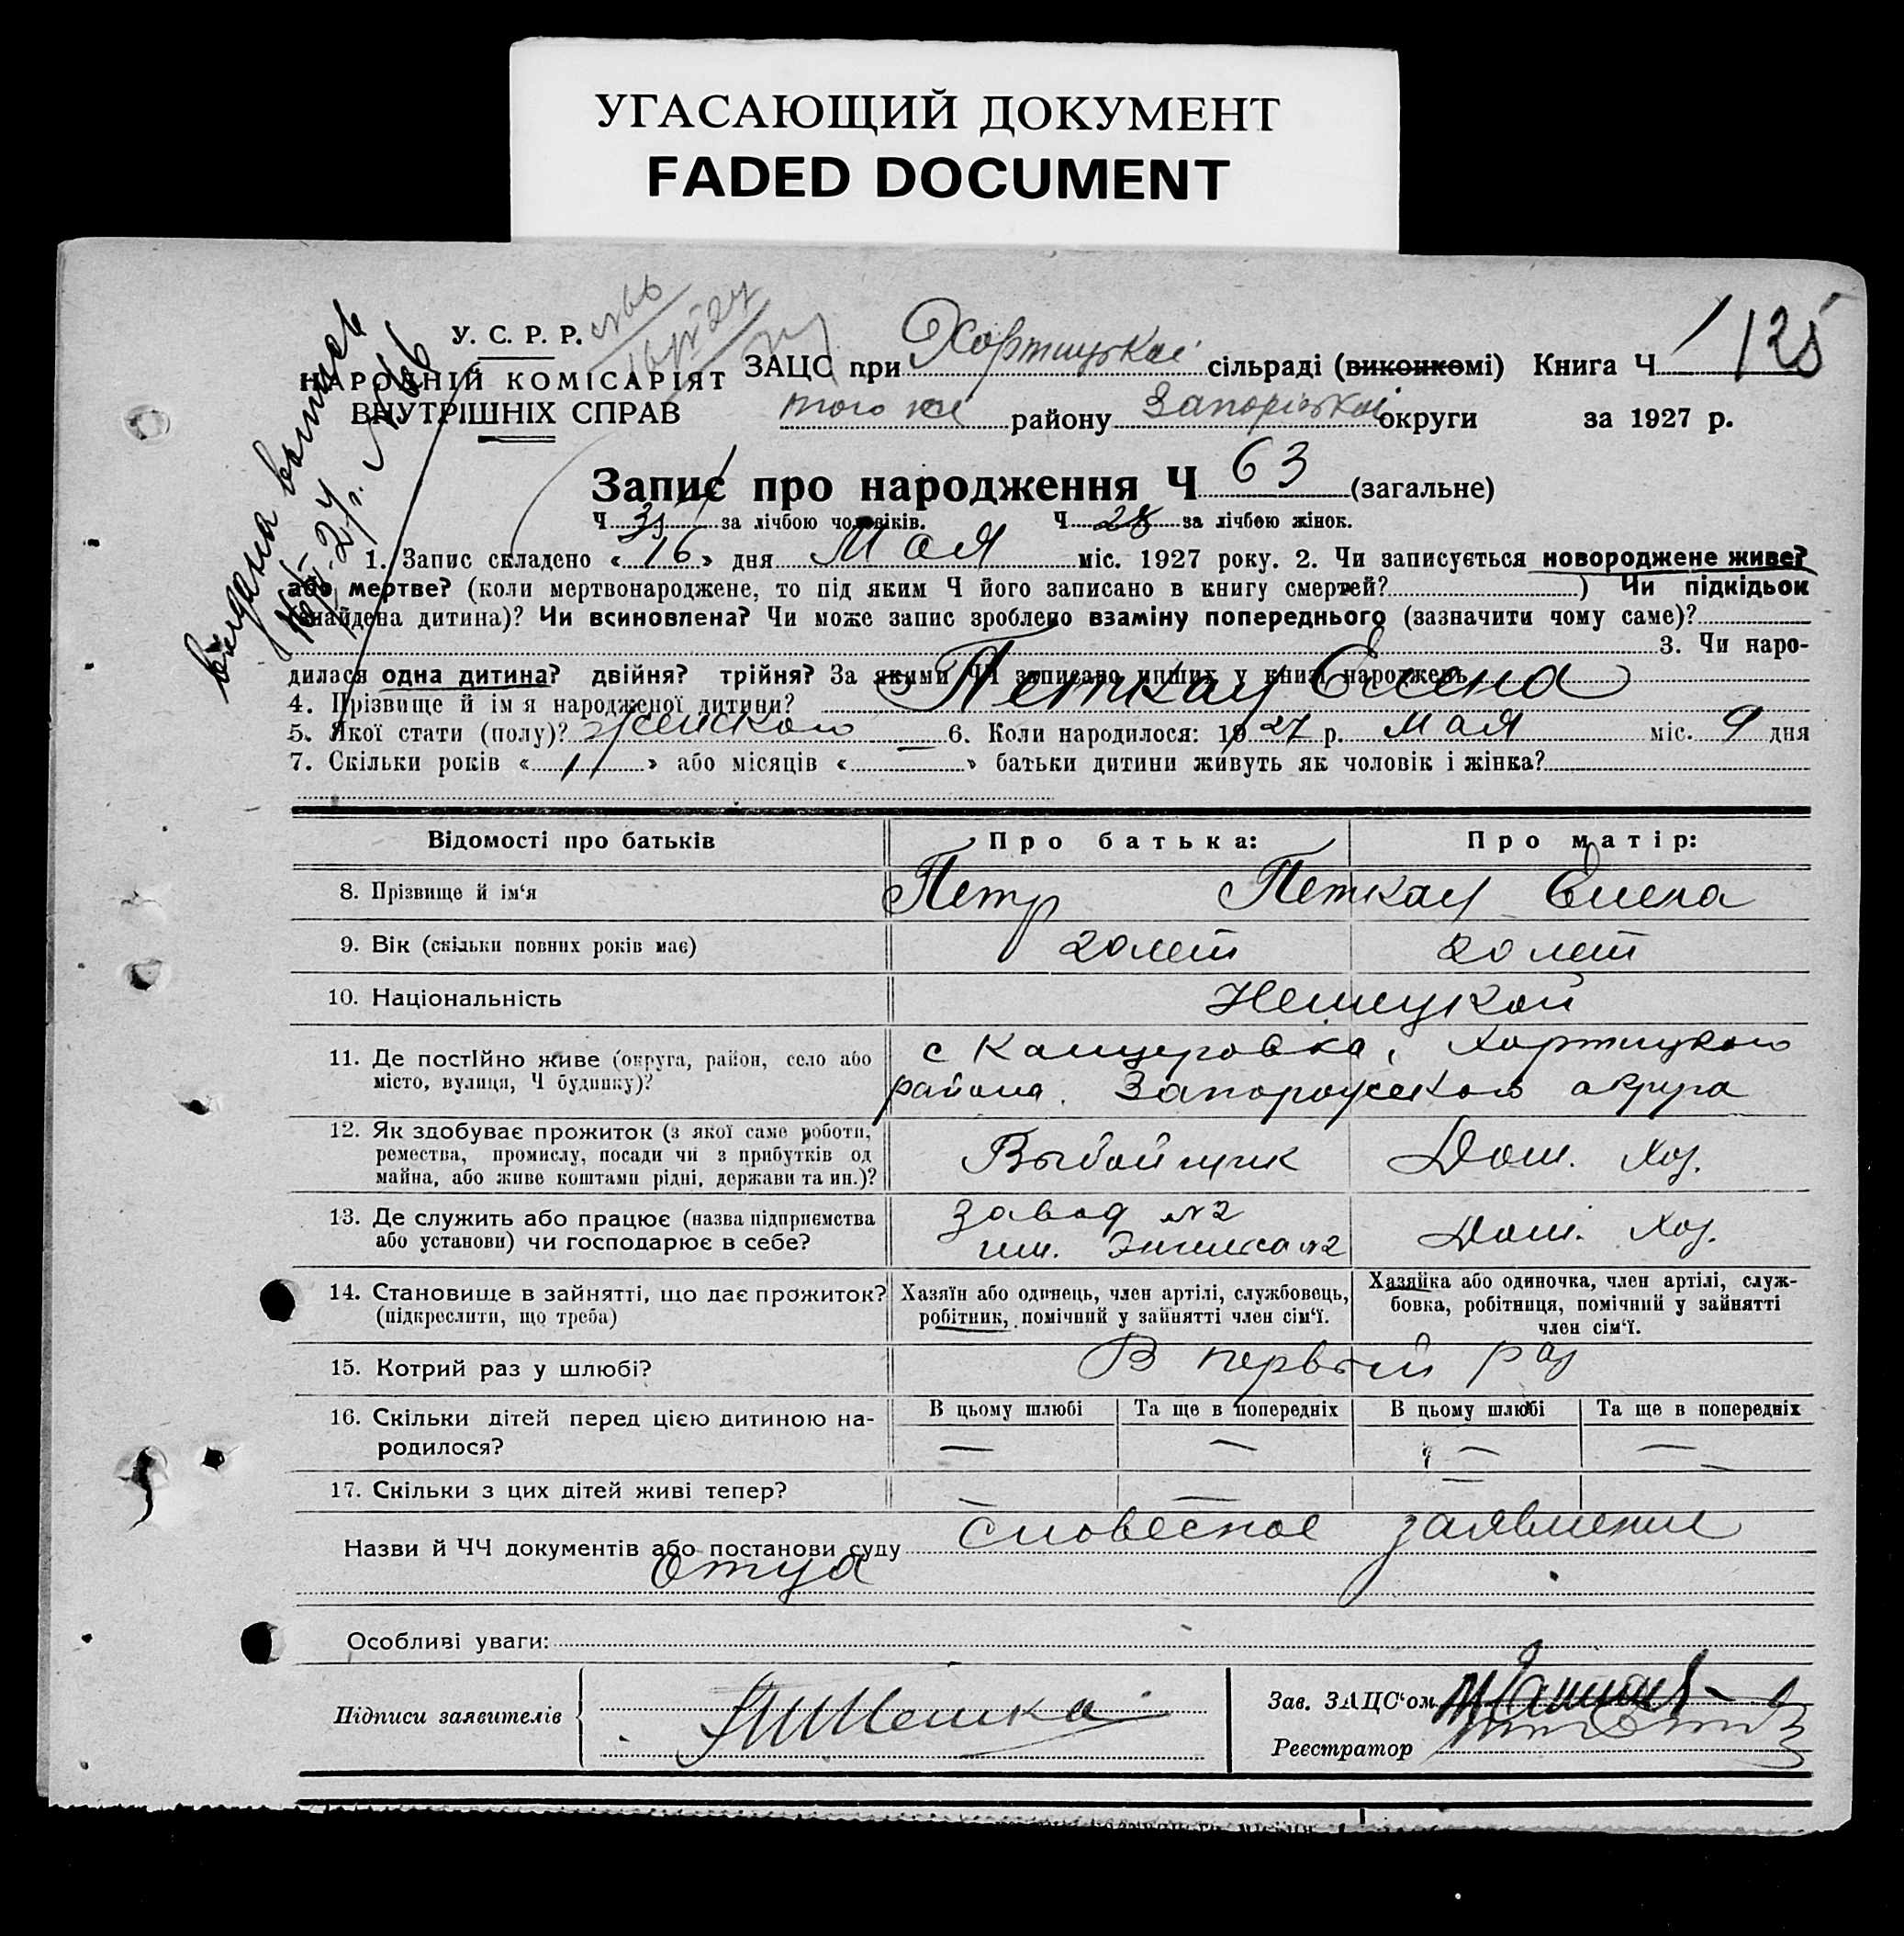 УГАСАЮЩИЙ ДОКУМЕНТ
FADED DOCUMENT
У. С. Р. Р.
НАРОДНІЙ КОМІСАРІЯТ
ВНУТРІШНІХ СПРАВ
видана выпись
ЗАЦС при Хортицькіи сільраді (виконкомі) Книга Ч 1 125
того же району Запорізькіи округи за 1927 р.
Запис про народження Ч 63 (загальне)
Ч за лічбою чоловіків. Ч 28 за лічбою жінок.
1. Запис складено «16» дня Мая міс. 1927 року. 2. Чи записується новороджене живе?
або мертве? (коли мертвонароджене, то під яким Ч його записано в книгу смертей? ) Чи підкідьок
(знайдена дитина)? Чи всиновлена? Чи може запис зроблено взаміну попереднього (зазначити чому саме)?
3. Чи наро-
дилася одна дитина? двійня? трійня? За якими ЧЧ записано инших у книзі народжень
4. Прізвище й ім'я народженої дитини? Петкау Елена
5. Якої стати (полу)? женского 6. Коли народилося: 1927 р. мая міс. 9 дня
7. Скільки років « 1 » або місяців « » батьки дитини живуть як чоловік і жінка?
Відомості про батьків Про батька: Про матір:
8. Прізвище й ім'я Петр Петкау Елена
9. Вік (скільки повних років має) 20 лет 20 лет
10. Національність Немецкой
11. Де постІйно живе (округа, район, село або
місто, вулиця, Ч будинку)?
с Канцеровка, Хортицкого
района. Запорожского округа
12. Як здобуває прожиток (з якої саме роботи,
ремества, промислу, посади чи з прибутків од
майна, або живе коштами рідні, держави та ин.)?
Выбойщик Дом. Хоз.
13. Де служить або працює (назва підприємства
або установи) чи господарює в себе?
Завод №2
им. Энгельса №2
Дом. Хоз.
14. Становище в зайнятті, що дає прожиток?
(підкреслити, що треба)
Хазяїн або одинець, член артілі, службовець,
робітник, помічний у зайнятті член сім'ї.
Хазяйка або одиночка, член артілі, служ-
бовка, робітниця, помічний у зайнятті
член сім'ї.
15. Котрий раз у шлюбі? В первый раз
16. Скільки дітей перед цією дитиною на-
родилося?
В цьому шлюбі Та ще в попередніх В цьому шлюбі Та ще в попередніх
— — — —
17. Скільки з цих дітей живі тепер? — — —
Назви й ЧЧ документів або постанови суду словесное заявление
отца
Особливі уваги:
Підписи заявителів
Зав. ЗАЦС'ом
Реєстратор